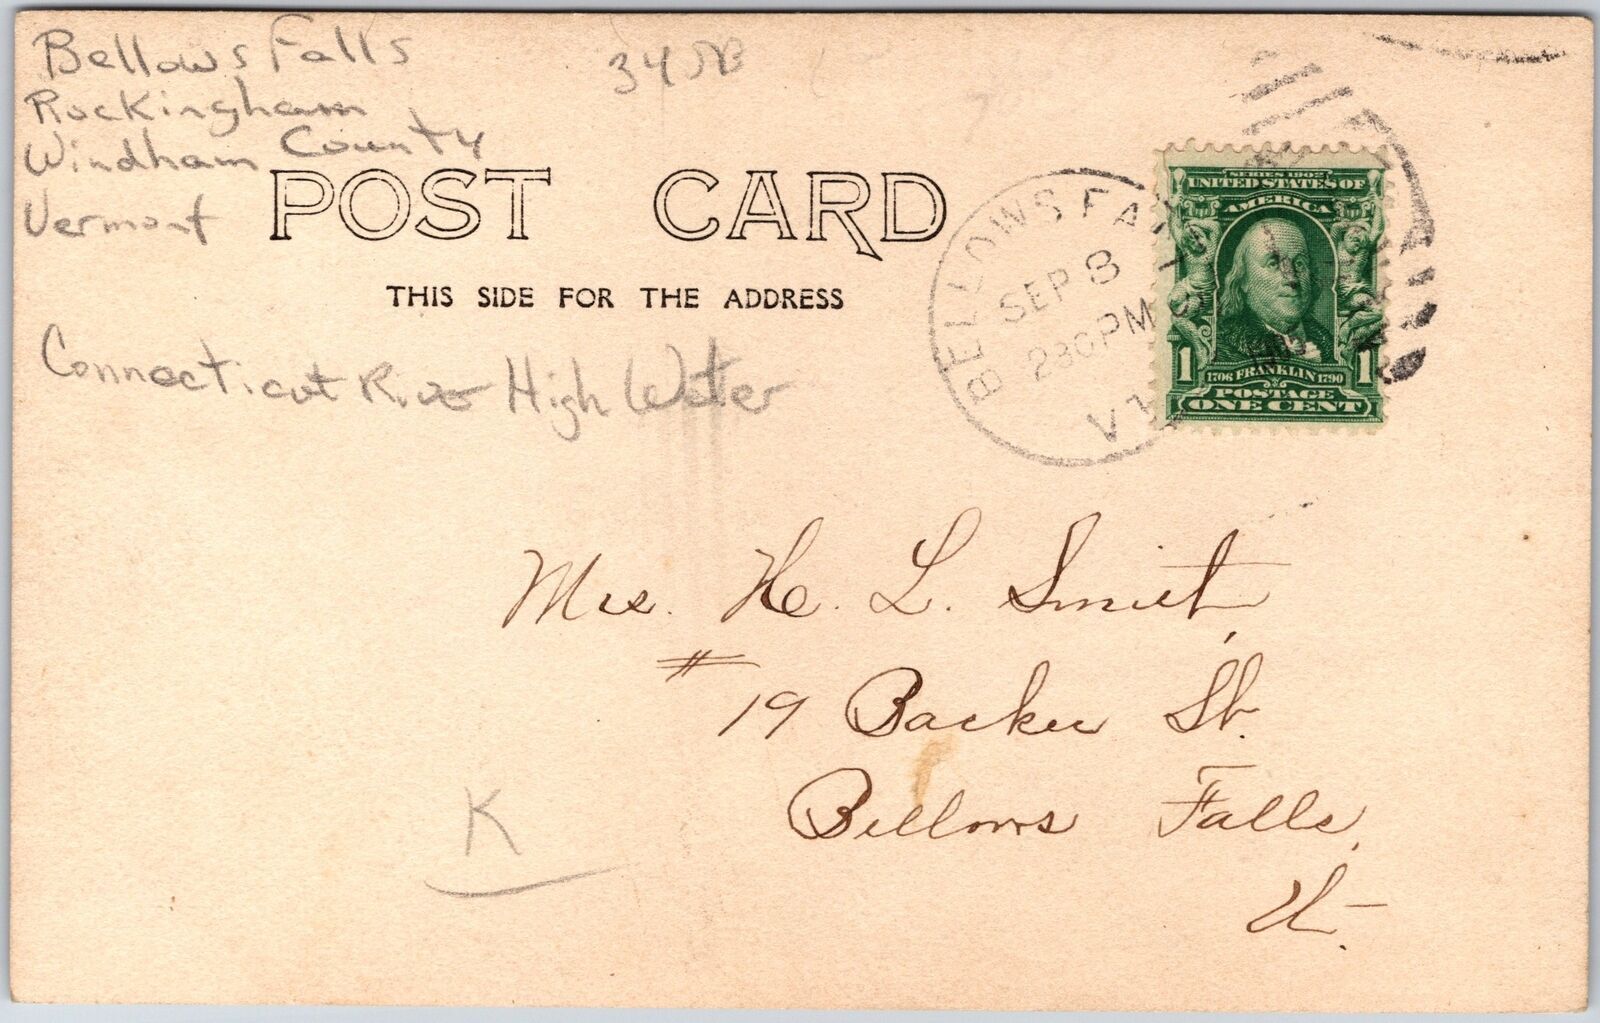 Bellows Falls
Rockingham
Windham County
Vermont
POST CARD
THIS SIDE FOR THE ADDRESS
Connecticut River High Water
BELLOWS FA
SEP 8
230PM
VT
SERIES 1902
UNITED STATES OF
AMERICA
1 1
1706 FRANKLIN 1790
POSTAGE
ONE CENT
Mrs. H. L. Smith,
# 19 Barker St.
Bellows Falls,
Vt.
K